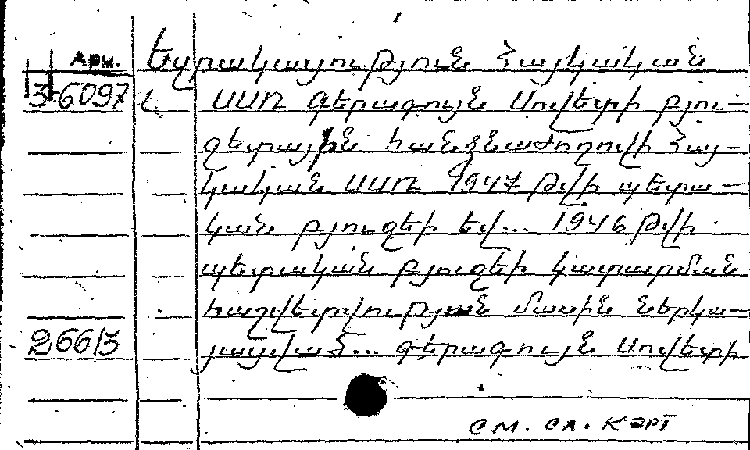 Արմ. Եզրակացություն Հայկական
3-6097 ՍՍՌ Գերագույն Սովետի բյու-
ջետային հանձնաժողովի Հայ-
կական ՍՍՌ 1947 թվի պետա-
կան բյուջեի եվ... 1946 թվի
պետական բյուջեի կատարման
հաշվետվության մասին ներկա-
2661з յացված... Գերագույն Սովետի
см. сл. карт